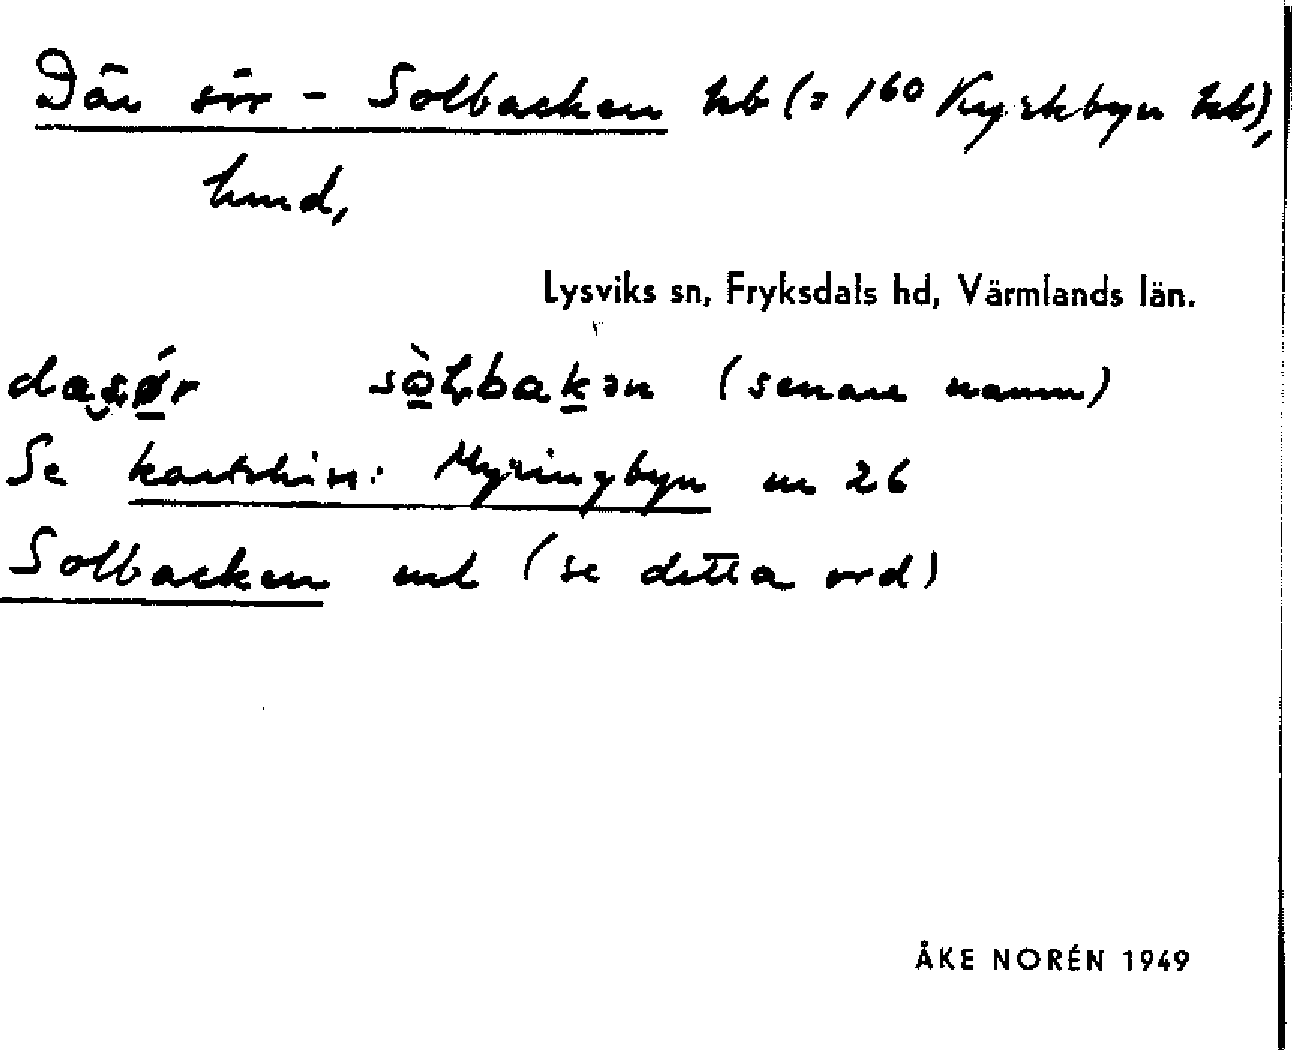 Där sör - Solbacken hb (= 1⁶⁰ Kyrkbyn hb),
hmd,
Lysviks sn, Fryksdals hd, Värmlands län.
dæsø̀r sòɽbakən (senare namn)
Se kartskiss: Myringbyn nr 26
Solbacken ut (se detta ord)
ÅKE NORÉN 1949